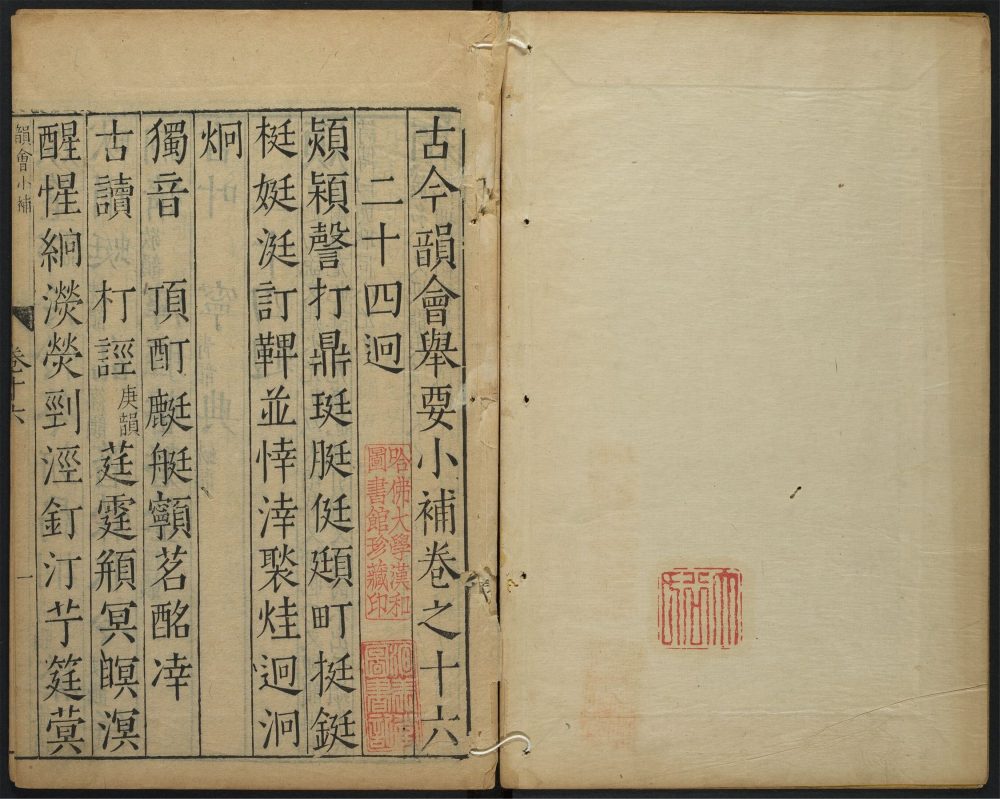 古今韻會舉要小補卷之十六
二十四迥
熲穎謦打鼎珽脡侹頲町挺鋌
梃娗涏訂鞞並悻涬褧烓迥泂
炯
獨音 頂酊艇顊茗酩婞
古讀 朾誙庚韻莛霆頩冥瞑溟
醒惺絅濙熒剄涇釘汀艼筳蓂
韻會小補 卷十六 一
哈佛大學漢和
圖書館珍藏印